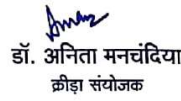 डॉ. अनिता मनचंदिया
क्रीड़ा संयोजक